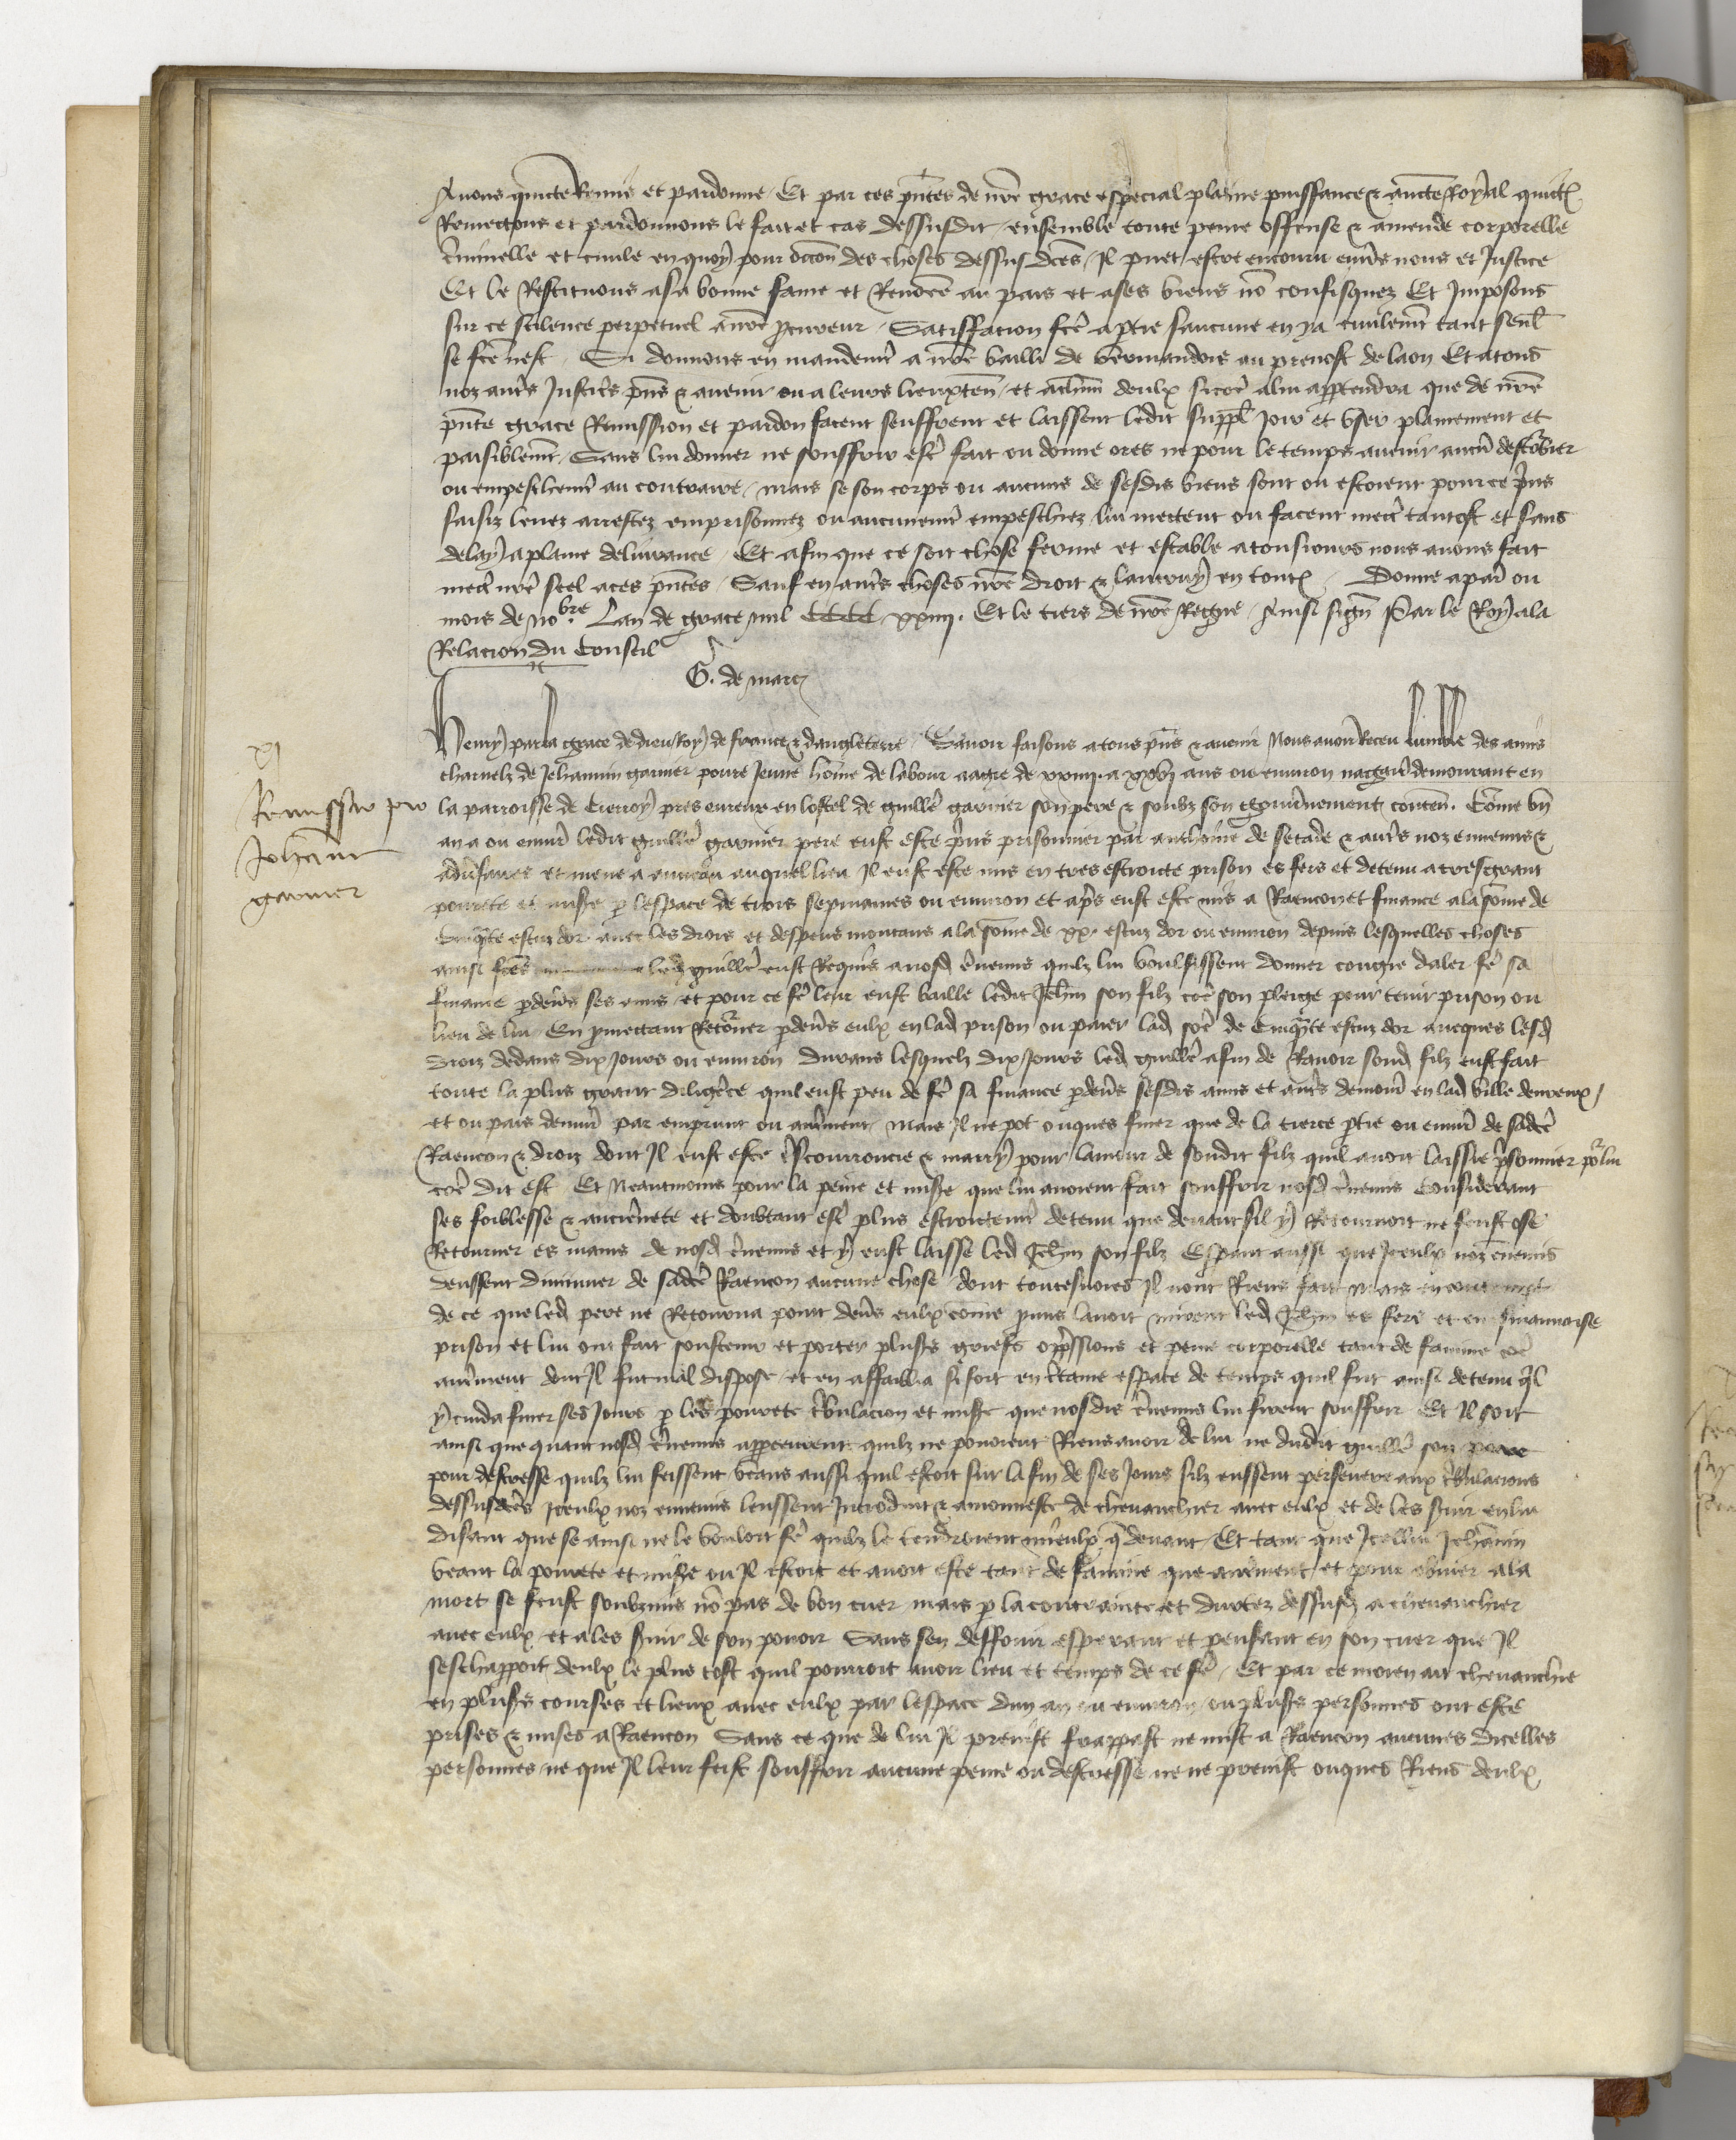 Avons quicte Remis et pardonne Et par ces pñtes de nre grace especial plaine puissance & aucte Royal quictõs
Remectons et pardonnons le fait et cas dessusdit ensemble toute peine offense & amende corporelle
criminelle et civile en quoy pour occon des choses dessus dces Il puet estre encouru envers nous et Justice
Et le Restituons a sa bonne fame et Renõee au pais et a ses biens nõ confisquez Et Imposons
sur ce silence perpetuel a nre procureur Satisfacion fce a ptie saucune en ya civilemt tant seul
se fce nest Si donnons en mandemt a nre bailli de Vermandois au prevost de laon Et a tous
noz autrs Justicrs pñs & avenir ou a leurs lieuxten et a chũn deulx sicõe a lui appartendra que de nre
pñte grace Remission et pardon facent seuffrent et laissent ledit suppl Joir et user plainement et
paisiblemt Sans lui donner ne souffrir estr fait ou donne ores ne pour le temps avenir aucũ destorbier
ou empeschemt au contraire mais se son corps ou aucuns de sesdis biens sont ou estoient pour ce prins
saisiz levez arrestez emprisonnez ou aucunemt empeschiez lui mettent ou facent mectr tantost et sans
delay a plaine delivrance Et afin que ce soit chose ferme et estable a tousiours nous avons fait
mectr nre seel a ces pñtes Sauf en autrs choses nre droit & lautruy en toutes Donne a paris ou
mois de novbre Lan de grace mil CCCC xxiiii. Et le tiers de nre Regne Ainsi signe Par le Roy a la
Relacion du Conseil
G. de marc
xi
Remissio pro
Johanne
garnier
Henry par la grace de dieu Roy de france & dangleterre Savoir faisons a tous pñs & avenir Nous avons Receu lumble des amis
charnelz de Jehannin garnier povre Jeune homme de labour aagie de xxiiii. a xxvi ans ou environ naggairs demourant en
la parroisse de Cierrey pres evreux en lostel de guillẽ garnier son pere & soubz son gouvernement conten. Cõme un
an a ou envirõ ledit guillẽ garnier pere eust este prins prisonnier par anthoine de & autrs noz ennemis &
adversaires et mene a auquel lieu Il eust este mis en tres estroicte prison es fers et detenu a tresgrant
povrete et misere p lespace de trois sepmaines ou environ et aprs eust este mis a Raencon et finance a la sõme de
Cinqte escuz dor avec les drois et despens montans a la sõme de xx. escuz dor ou environ depuis lesquelles choses
ainsi fces led guillẽ eust Requis a nosd ẽnemis quilz lui voulsissent donner congie daler fr sa
finance p devers ses amis et pour ce fr leur eust baille ledit Jehñn son filz cõe son pleige pour tenir prison ou
lieu de lui En pmettant Retõner p devers eulx en lad prison ou paier lad sõe de Cinqte escuz dor avecques lesd
droiz dedans dix Jours ou environ Durans lesquelz dix Jours led guillẽ afin de Ravoir sond filz eust fait
toute la plus grant diligẽce quil eust peu de fr sa finance p devers sesdis amis et autrs demourãs en lad ville devreux
et ou pais denvirõ par emprunt ou autrement mais Il ne pot onques finer que de la tierce ptie ou envirõ de sadce
Raencon & droiz dont Il eust este courroucie & marry pour lamour de sondit filz quil avoit laissie prisonnier por lui
cõe dit est Et Neantmoins pour la peine et misere que lui avoient fait souffrir nosd ẽnemis Considerant
ses foiblesse & anciennete et doubtant estr plus estroictemt detenu que devant sil y Retournoit ne seust ose
Retourner es mains de nosd ẽnemis et y eust laisse led Jehñn son filz Esperant aussi que Iceulx noz ẽnemis
deussent diminuer de sadce Raencon aucune chose dont toutesvoies Il nont Riens fait Mais
de ce que led pere ne Retourna point devers eulx cõme pmis lavoit mirent led Jehñn es fers et en mauvaise
prison et lui ont fait soustenir et porter plusrs griefs oppressions et peine corporelle tant de famine cõe
autrement dont Il fut mal dispose et en affaibli si fort en ctaine espace de temps quil fut ainsi detenu ql
y cuida finer ses Jours p les povrete tribulacion et misere que nosdis ẽnemis lui firent souffrir Et Il soit
ainsi que quant nosd ẽnemis apperceurent quilz ne povoient Riens avoir de lui ne dudit guillẽ son pere
pour destresse quilz lui feissent veans aussi quil estoit sur la fin de ses Jours silz eussent persevere aux tribulacions
dessusdces Iceulx noz ennemis leussent Introduit & amonneste de chevauchier avec eulx et de les suir en lui
disant que se ainsi ne le vouloit fr quilz le tendroient mieulx q devant Et tant que Icellui Jehãnin
veant la povrete et misere ou Il estoit et avoit este tant de famine que autrement et pour obvier a la
mort se feust soubzmis nõ pas de bon cuer mais p la contrainte et durtez dessusd a chevauchier
avec eulx et a les suir de son povoir Sans sen deffouir esperant et pensant en son cuer que Il
seschapperoit deulx le plus tost quil pourroit avoir lieu et temps de ce fr Et par ce moien ait chevauchie
en plusrs courses et lieux avec eulx par lespace dun an ou environ ou plusrs personnes ont este
prises & mises a Raencon Sans ce que de lui Il prenist frappast ne mist a Raencon aucunes dicelles
personnes ne que Il leur feist souffrir aucune peine ou destresse ne ne prenist onques Riens deulx